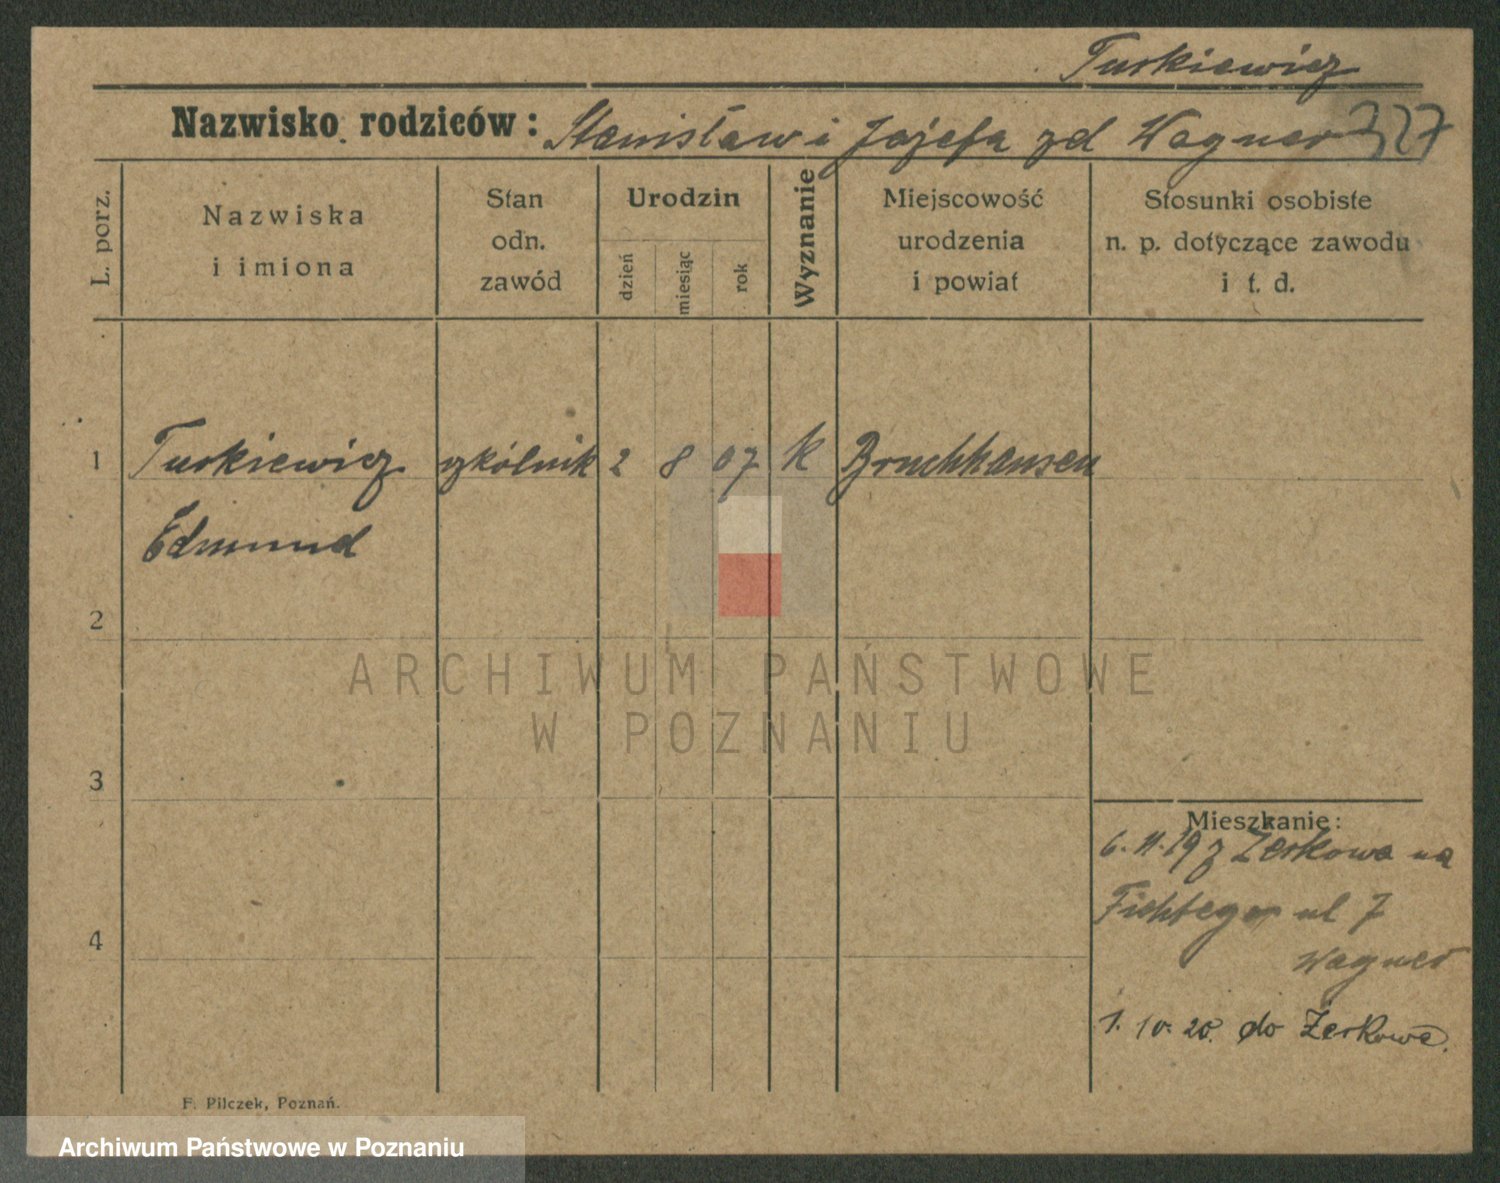 Turkiewicz
Nazwisko rodziców: Stanisław i Józefa zd Wagner 327
L. porz.
Nazwiska
i imiona
Stan
odn.
zawód
Urodzin
dzień
miesiąc
rok
Wyznanie
Miejscowość
urodzenia
i powiat
Stosunki osobiste
n. p. dotyczące zawodu
i t. d.
1 Turkiewicz szkólnik 2 8 07 k Bruchhausen
Edmund
2
ARCHIWUM PAŃSTWOWE
W POZNANIU
3
Mieszkanie:
6. 11. 19 z Żerkowa na
Fichtego ul 7
Wagner
4
1. 10. 20. do Żerkowa.
F. Pilczek, Poznań.
Archiwum Państwowe w Poznaniu